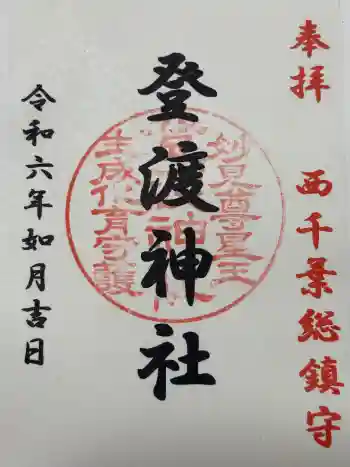 奉拝
西千葉総鎮守
登渡神社
妙見尊星王
令和六年如月吉日